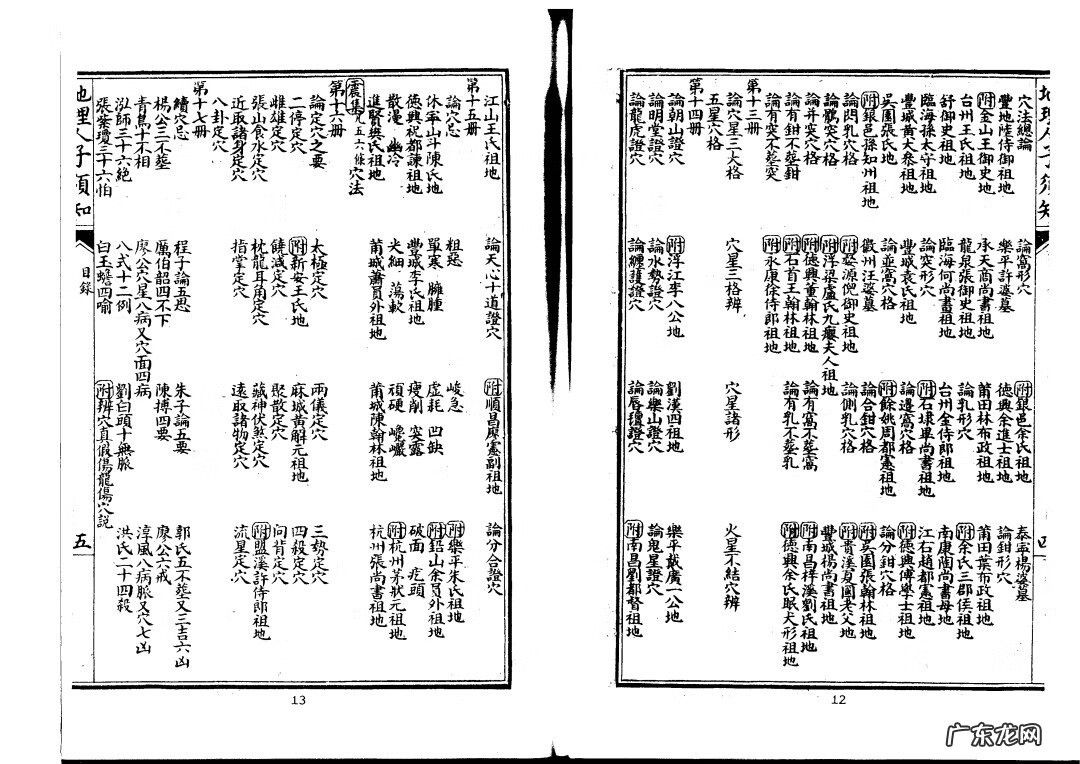 地理人子須知 四
穴法總論 論窩形穴 附銀邑余氏祖地 泰寧楊婆墓
豐地陸侍御祖地 樂平許婆墓 德興余進士祖地 論鉗形穴
附金山王御史地 承天商尚書祖地 莆田林布政祖地 莆田葉布政祖地
台州王氏祖地 龍泉張御史祖地 論乳形穴 附余氏三郡侯祖地
舒御史祖地 臨海何尚書祖地 台州金侍郎祖地 南康陶尚書母地
臨海孫太守祖地 論突形穴 附石埭畢尚書祖地 江右趙都憲祖地
豐城黃大參祖地 豐城袁氏祖地 論邊窩穴格 附德興傅學士祖地
吳園張氏地 論並窩穴格 附餘姚周都憲祖地 論分鉗穴格
附銀邑孫知州祖地 徽州汪婆墓 論合鉗穴格 附吳園張翰林祖地
論閃乳穴格 附婺源倪御史祖地 論側乳穴格 附貴溪夏國老父地
論鶻突穴格 附浮梁盧氏九癭夫人祖地 豐城楊尚書祖地
論并突穴格 附德興董翰林祖地 論有窩不葬窩 附南昌梓溪劉氏祖地
論有鉗不葬鉗 附石首王翰林祖地 論有乳不葬乳 附德興余氏眠犬形祖地
論有突不葬突 附永康徐侍郎祖地
第十三册
論穴星三大格 穴星三格辨 穴星諸形 火星不結穴辨
五星穴格
第十四册
論朝山證穴 附浮江李八公地 劉漢四祖地 樂平戴廣一公地
論明堂證穴 論水勢證穴 論樂山證穴 論鬼星證穴
論龍虎證穴 論纏護證穴 論唇氊證穴 附南昌劉都督祖地
12
江山王氏祖地 論天心十道證穴 附順昌廖憲副祖地 論分合證穴
第十五册
論穴忌 粗惡 峻急 附樂平朱氏祖地
休寧山斗陳氏地 單寒 臃腫 虛耗 凹缺 附鉛山余員外祖地
德興祝都諫祖地 豐城李氏祖地 瘦削 突露 破面 疙頭
散漫 幽冷 尖細 蕩軟 頑硬 巉巖 附杭州茅狀元祖地
進賢樊氏祖地 莆城蕭員外祖地 莆城陳翰林祖地 杭州張尚書祖地
震集凡五六條穴法
第十六册
論定穴之要 太極定穴 兩儀定穴 三勢定穴
二停定穴 附新安王氏地 麻城黃解元祖地 四殺定穴
雌雄定穴 饒減定穴 聚散定穴 向背定穴
張山食水定穴 枕龍耳角定穴 藏神伏煞定穴 附盟溪許侍郎祖地
近取諸身定穴 指掌定穴 遠取諸物定穴 流星定穴
八卦定穴
第十七册
續穴忌 程子論五患 朱子論五要 郭氏五不葬又三吉六凶
楊公三不葬 厲伯韶四不下 陳搏四要 廖公六戒
青烏十不相 廖公穴星八病又穴面四病 淳風八病脈又穴七凶
泓師三十六絕 八式十二例 劉白頭十無脈 洪氏二十四殺
張紫瓊三十六怕 白玉蟾四喻 附辨穴真假傷龍傷穴説
地理人子須知 目錄 五
13
广东龙网